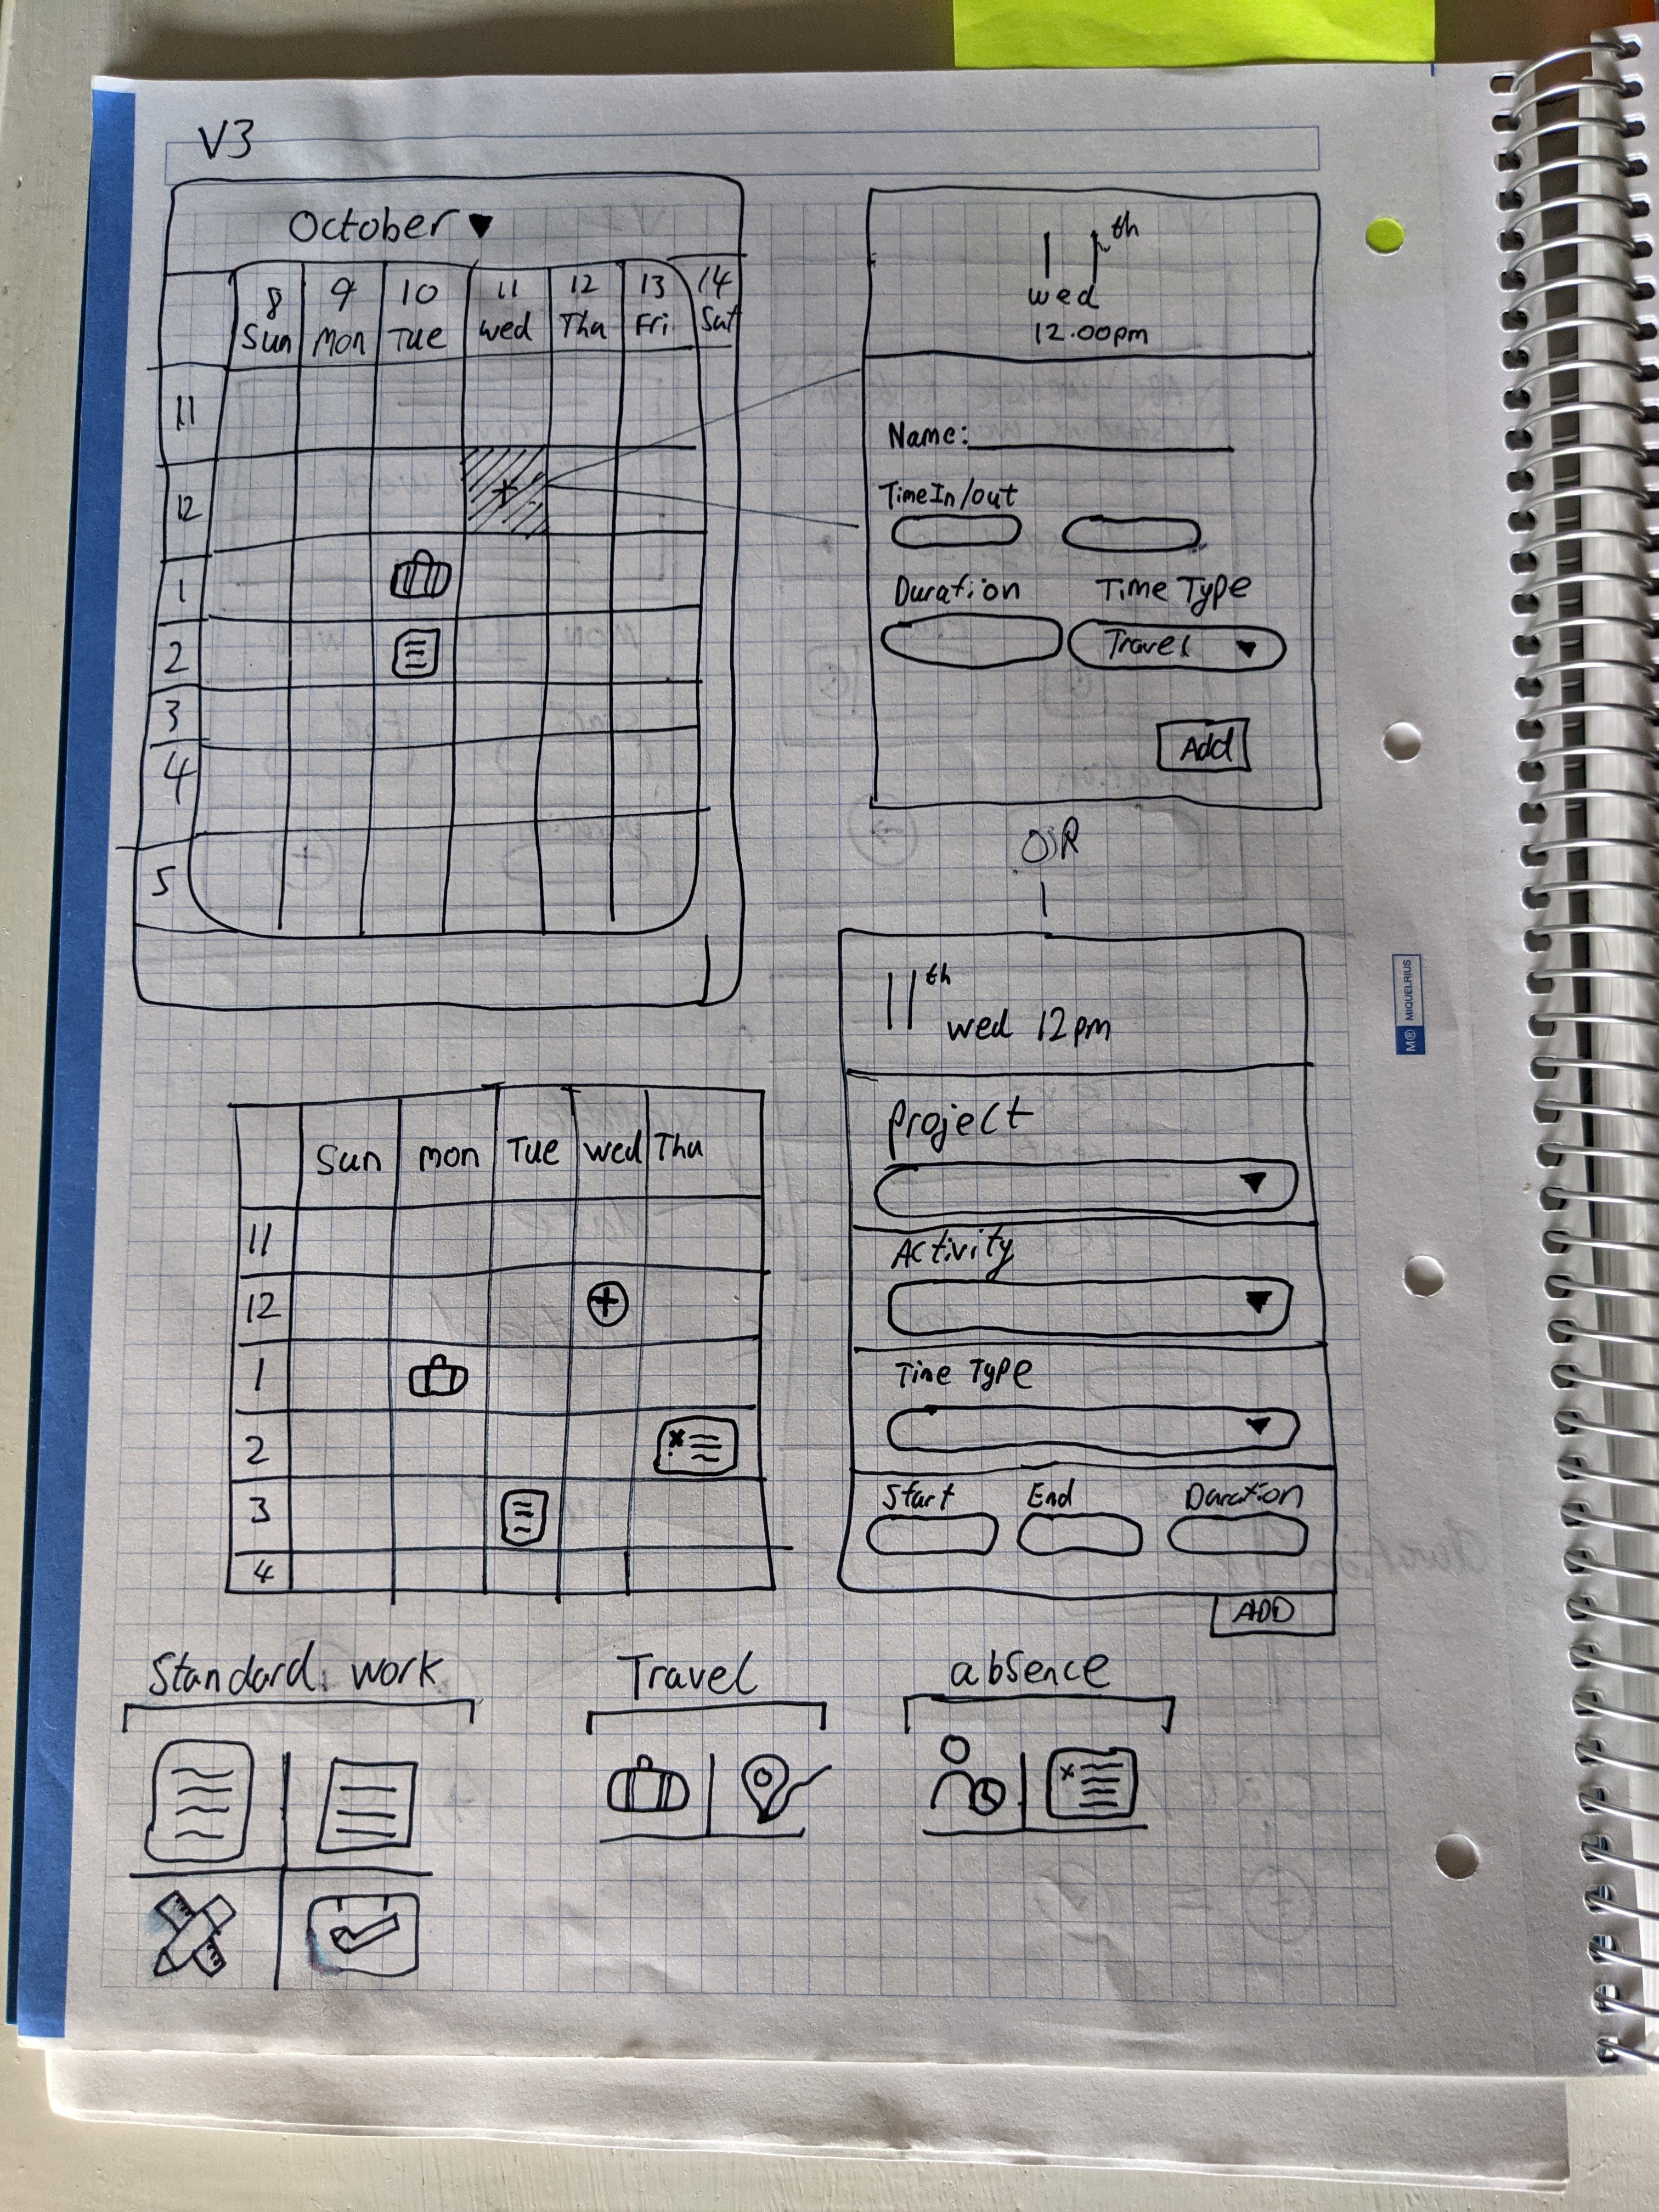 V3
October
8 9 10 11 12 13 14
Sun Mon Tue Wed Thu Fri Sat
11
12
1
2
3
4
5
11th
Wed
12.00pm
Name:
Time In/out
Duration Time Type
Travel
Add
OR
11th
Wed 12pm
Project
Activity
Time Type
Start End Duration
ADD
Sun Mon Tue Wed Thu
11
12
1
2
3
4
Standard work Travel absence
MIQUELRIUS